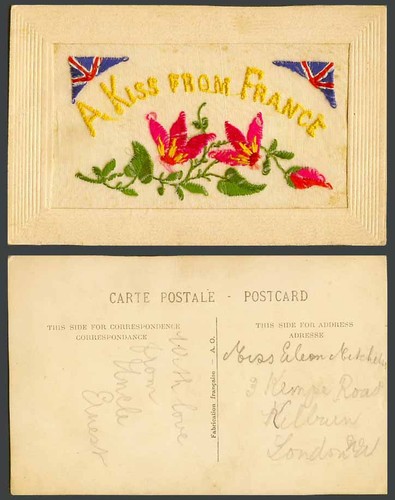 A KISS FROM FRANCE
CARTE POSTALE - POSTCARD
THIS SIDE FOR CORRESPONDENCE
CORRESPONDANCE
THIS SIDE FOR ADDRESS
ADRESSE
With love
from
Uncle
Ernest
Fabrication française - A. O.
Miss Eileen
Road
Kilburn
London